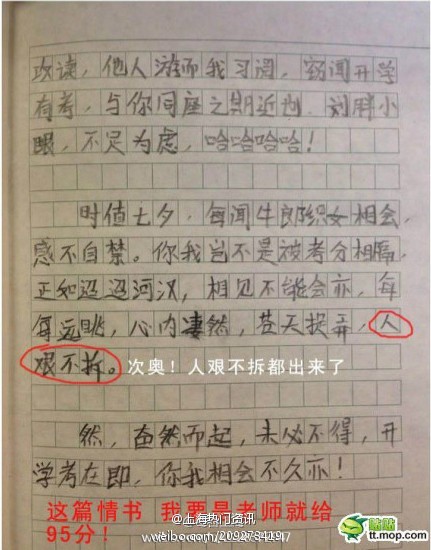 攻读，他人游而我习阅，窃闻开学
有考，与你同座之期近也．刘胖小
眼，不足为虑，哈哈哈哈！
时值七夕，每闻牛郎织女相会，
感不自禁。你我岂不是被考分相隔，
正如迢迢河汉，相见不能会亦，每
每远眺，心内凄然，苍天捉弄，人
艰不拆。
次奥！人艰不拆都出来了
然，奋然而起，未必不得，开
学考在即，你我相会不久亦！
这篇情书 我要是老师就给
95分！
@上海热门资讯
weibo.com/2092784297
猫扑
tt.mop.com